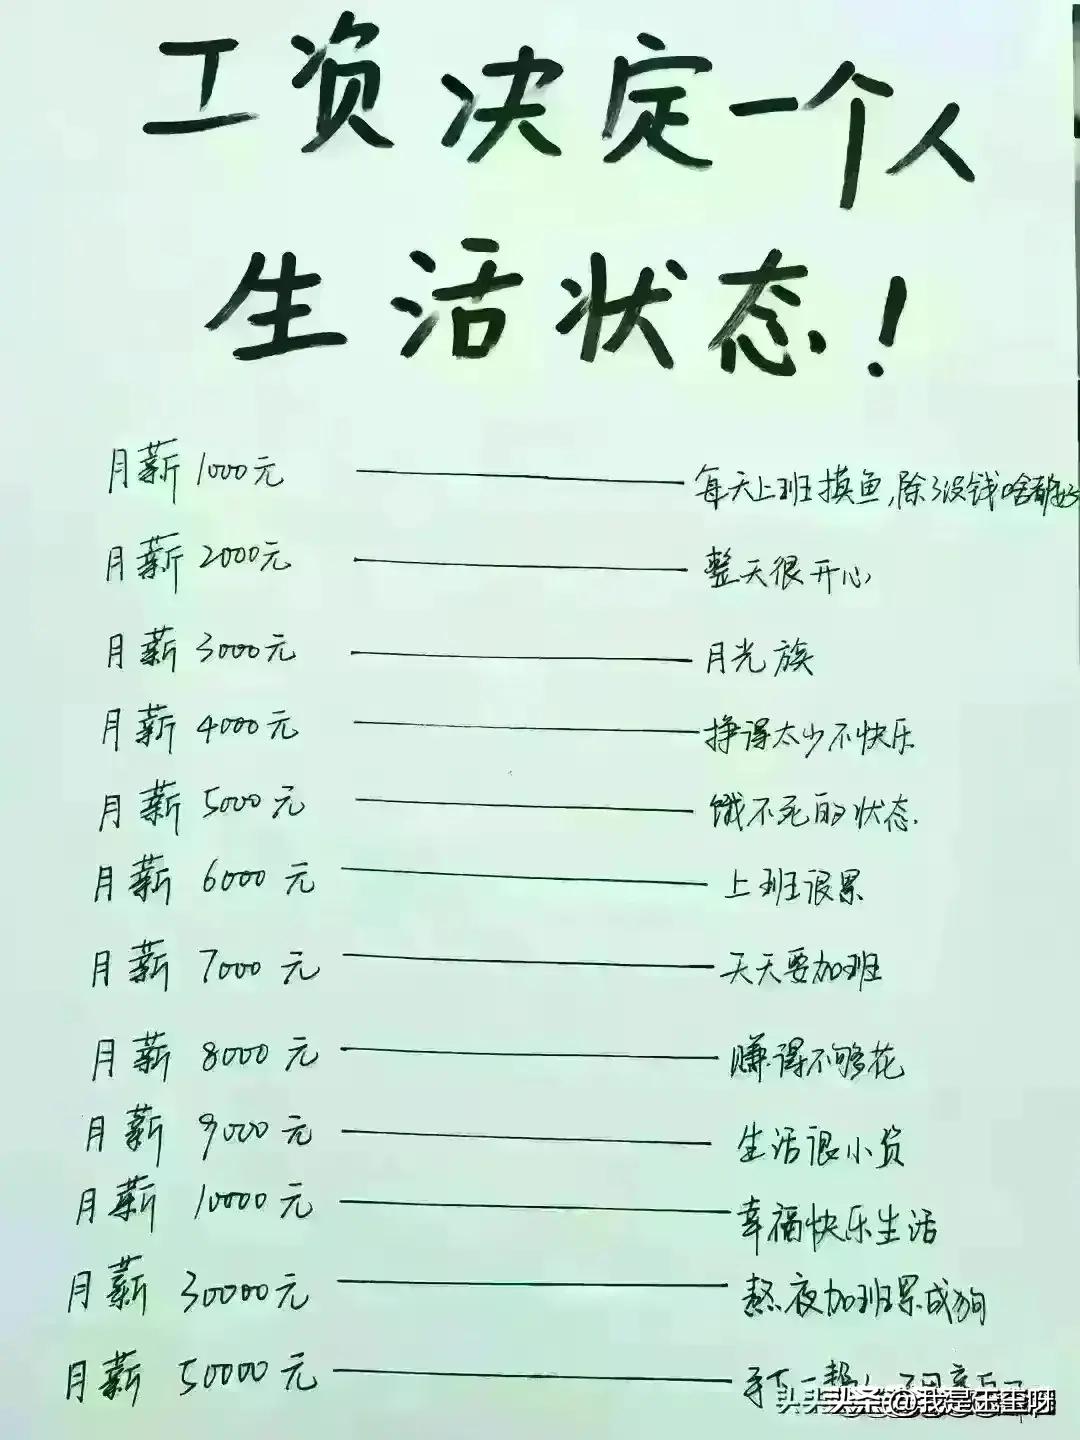 工资决定一个人
生活状态！
月薪1000元 每天上班摸鱼,除了没钱啥都好
月薪2000元 整天很开心
月薪3000元 月光族
月薪4000元 挣得太少不快乐
月薪5000元 饿不死的状态.
月薪6000元 上班很累
月薪7000元 天天要加班
月薪8000元 赚得不够花
月薪9000元 生活很小资
月薪10000元 幸福快乐生活
月薪30000元 熬夜加班累成狗
月薪50000元 手下一帮
头条@我是玉玺呀